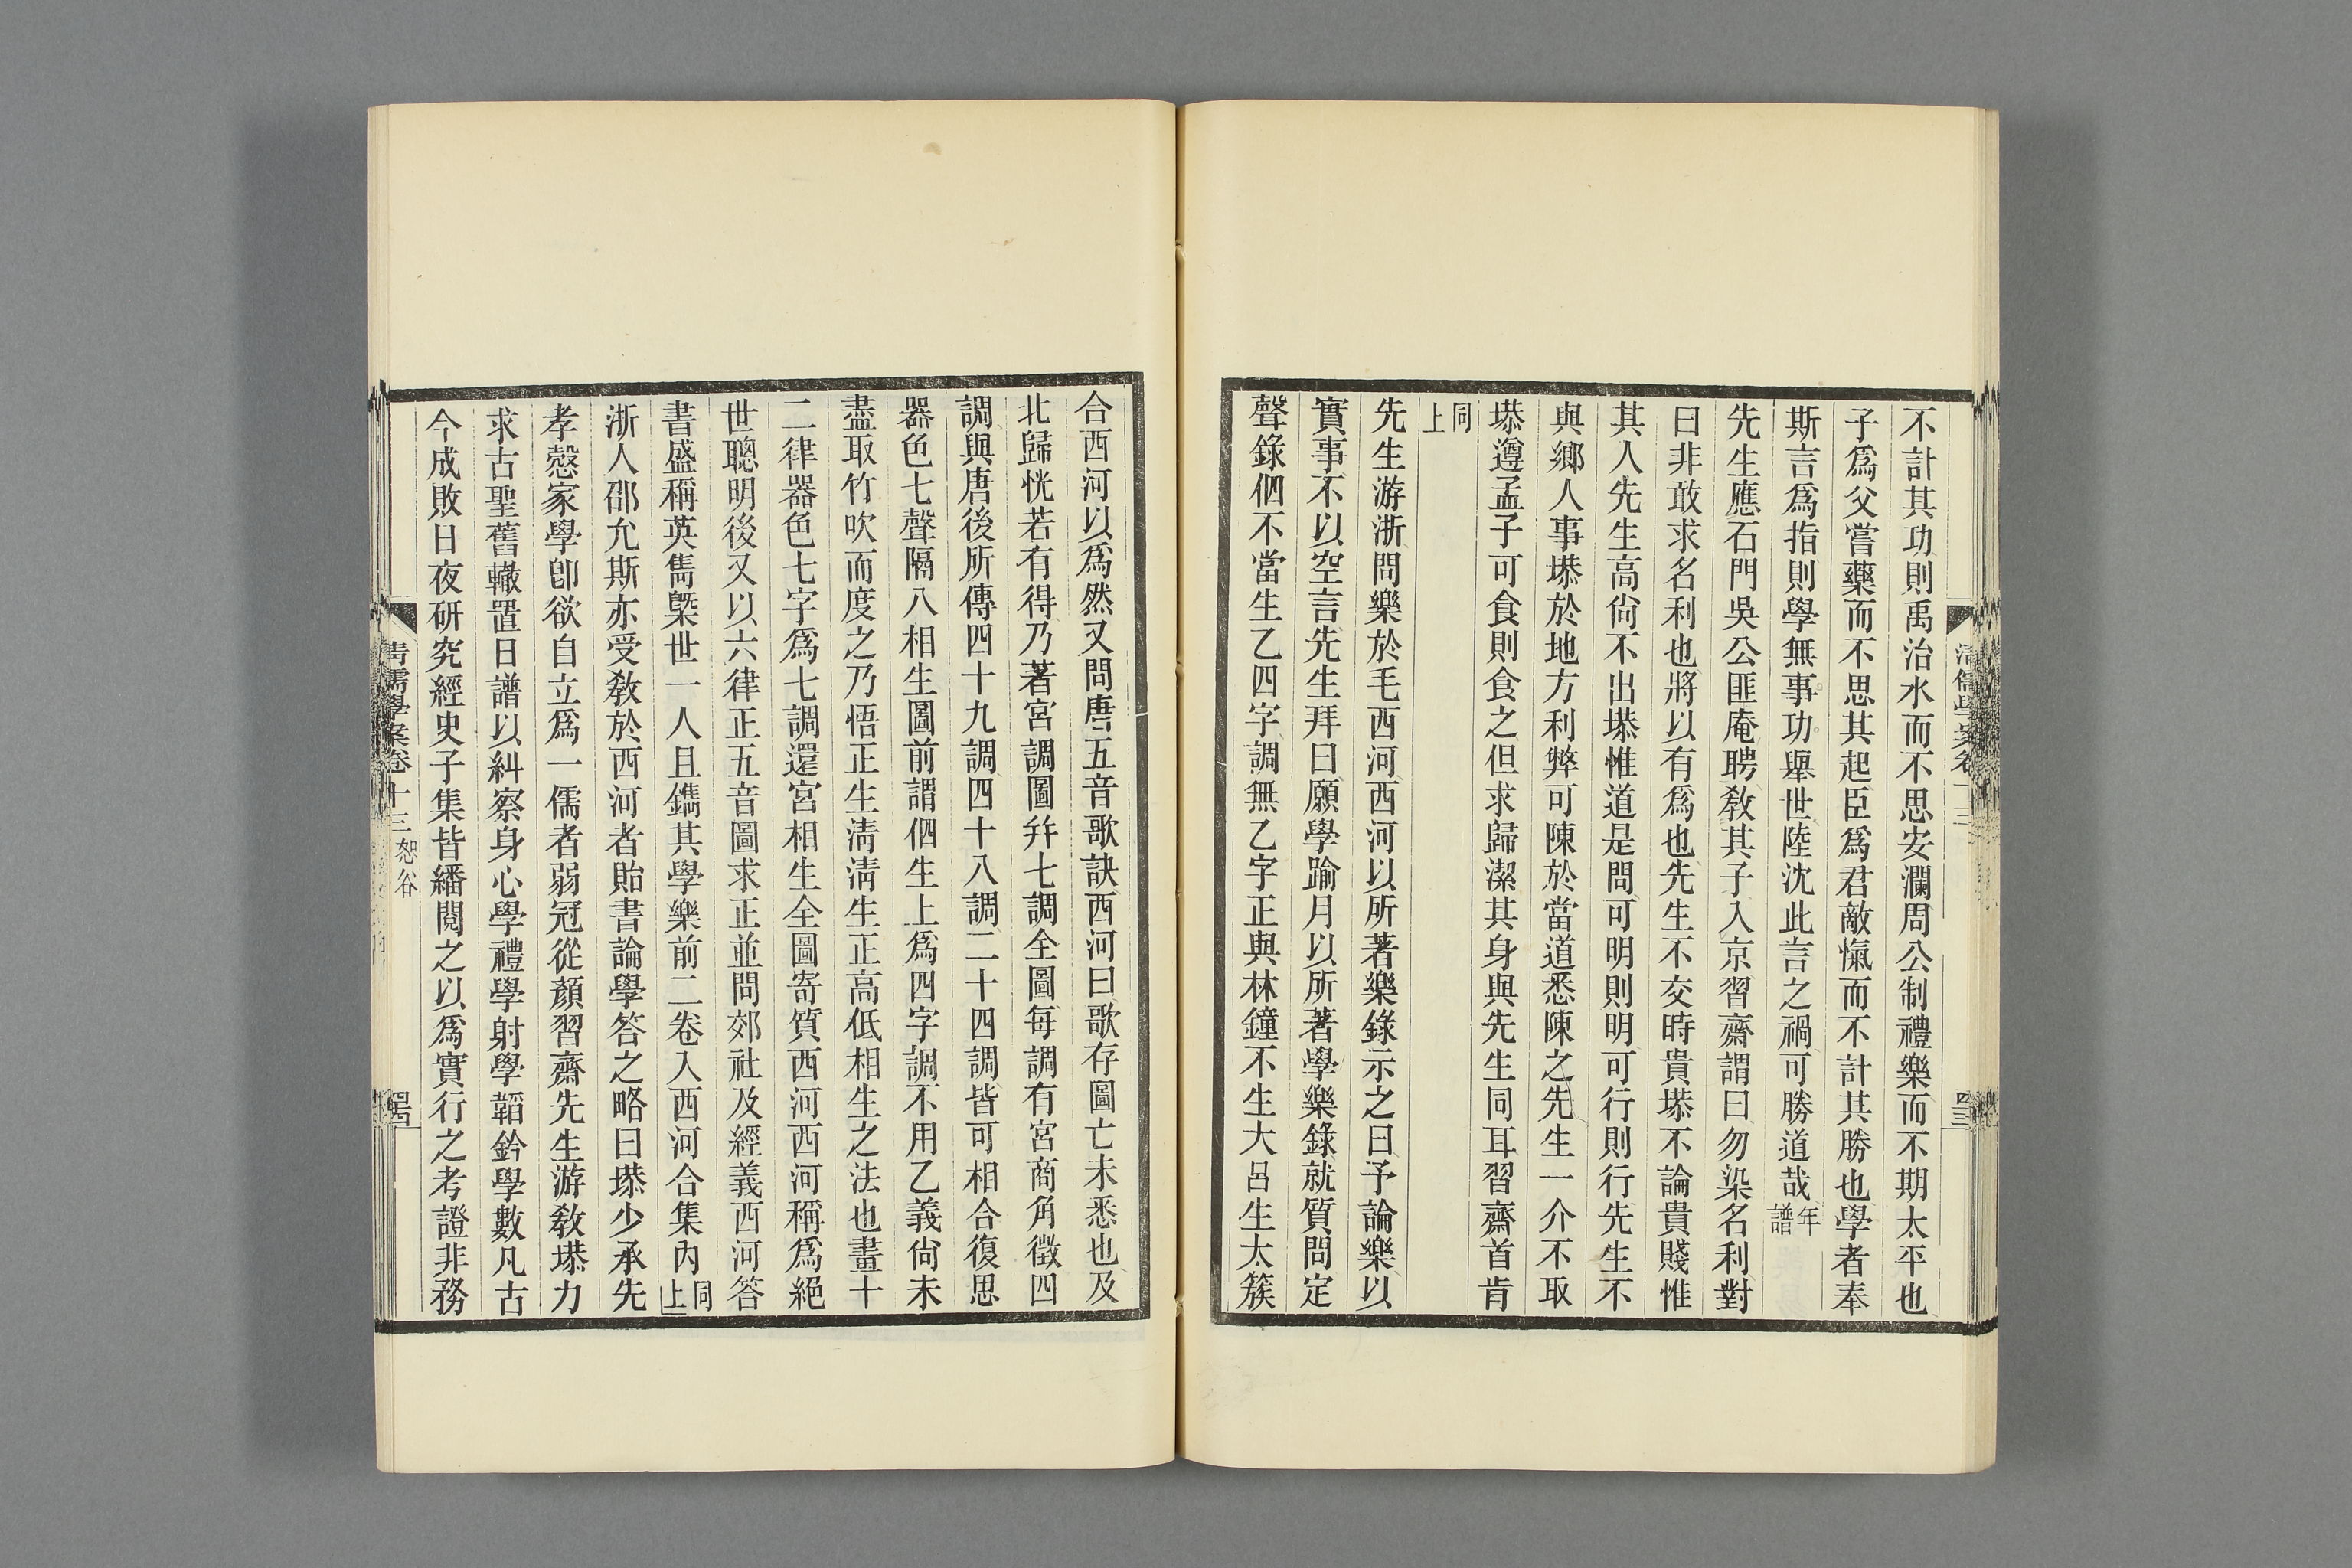 不計其功則禹治水而不思安瀾周公制禮樂而不期太平也
子爲父嘗藥而不思其起臣爲君敵愾而不計其勝也學者奉
斯言爲指則學無事功舉世陸沈此言之禍可勝道哉年譜
先生應石門吳公匪庵聘敎其子入京習齋謂曰勿染名利對
曰非敢求名利也將以有爲也先生不交時貴塨不論貴賤惟
其人先生高尙不出塨惟道是問可明則明可行則行先生不
與鄉人事塨於地方利弊可陳於當道悉陳之先生一介不取
塨遵孟子可食則食之但求歸潔其身與先生同耳習齋首肯
同上
先生游浙問樂於毛西河西河以所著樂錄示之曰予論樂以
實事不以空言先生拜曰願學踰月以所著學樂錄就質問定
聲錄伵不當生乙四字調無乙字正與林鐘不生大呂生太簇
合西河以爲然又問唐五音歌訣西河曰歌存圖亡未悉也及
北歸恍若有得乃著宮調圖幷七調全圖每調有宮商角徵四
調與唐後所傳四十九調四十八調二十四調皆可相合復思
器色七聲隔八相生圖前謂伵生上爲四字調不用乙義尙未
盡取竹吹而度之乃悟正生淸淸生正高低相生之法也畫十
二律器色七字爲七調還宮相生全圖寄質西河西河稱爲絕
世聰明後又以六律正五音圖求正並問郊社及經義西河答
書盛稱英雋槩世一人且鐫其學樂前二卷入西河合集內同上
浙人邵允斯亦受敎於西河者貽書論學答之略曰塨少承先
孝慤家學卽欲自立爲一儒者弱冠從顏習齋先生游敎塨力
求古聖舊轍置日譜以糾察身心學禮學射學韜鈐學數凡古
今成敗日夜硏究經史子集皆繙閱之以爲實行之考證非務
淸儒學案卷十三 恕谷